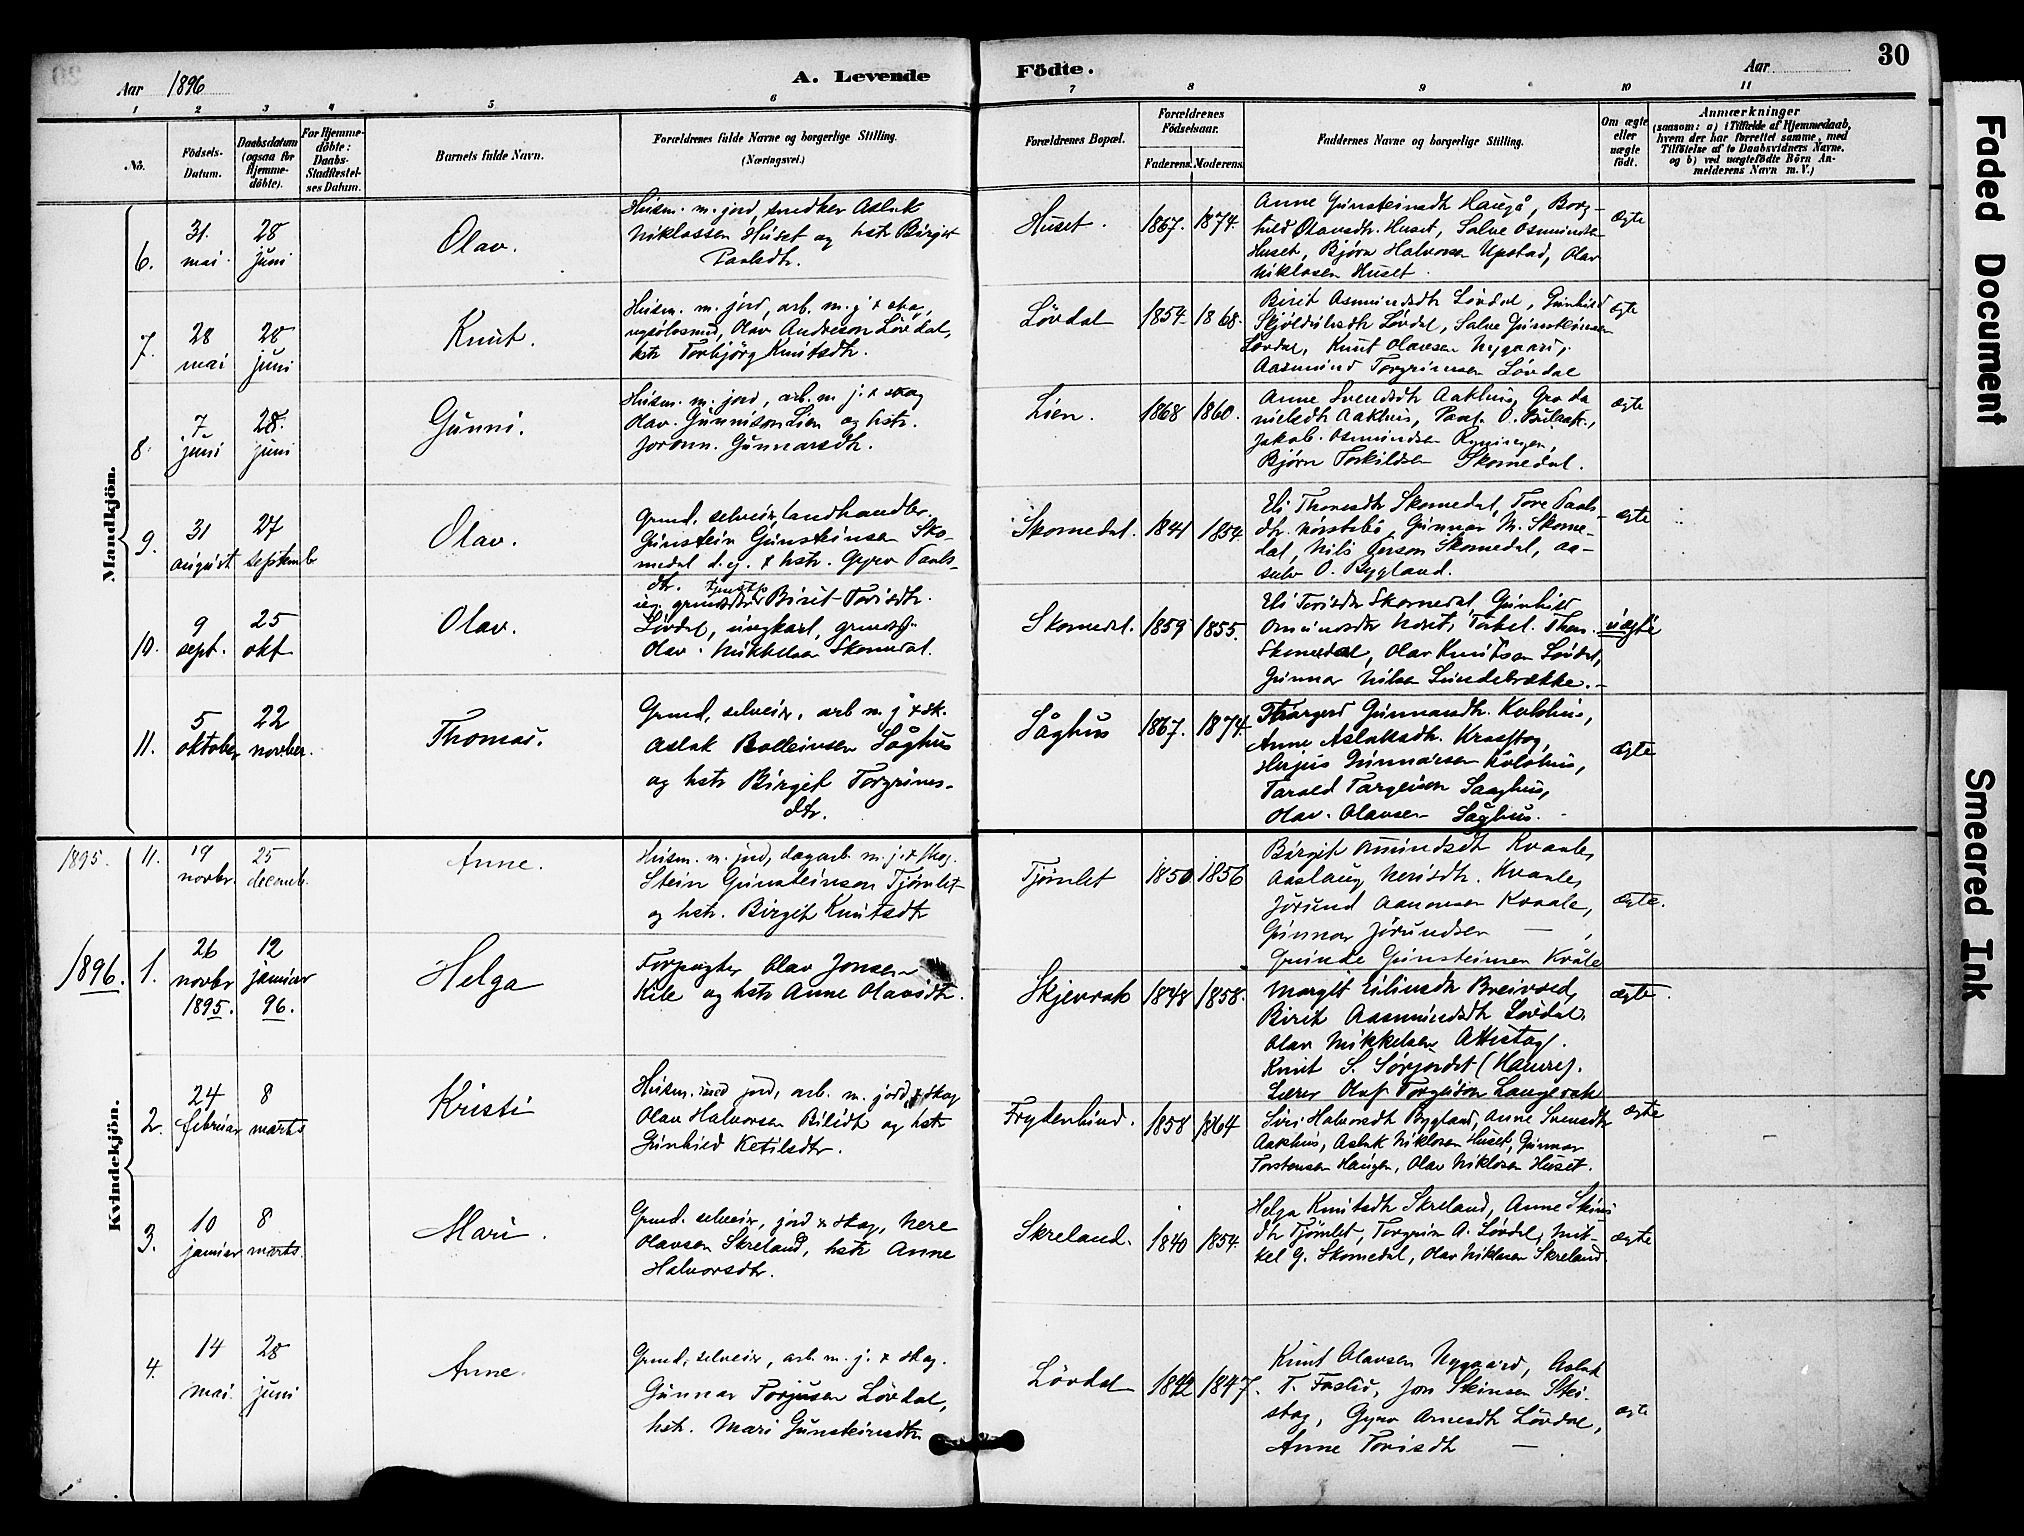 30
Aar 1896
A. Levende
Födte.
Aar
1 2 3 4 5 6 7 8 9 10 11
No.
Födsels-
Datum.
Daabsdatum
(ogsaa for
Hjemme-
döbte).
For Hjemme-
döbte:
Daabs-
Stadfæstel-
ses Datum.
Barnets fulde Navn.
Forældrenes fulde Navne og borgerlige Stilling.
(Næringsvei.)
Forældrenes Bopæl.
Forældrenes
Födselsaar.
Faderens. Moderens.
Faddernes Navne og borgerlige Stilling.
Om ægte
eller
uægte
födt.
Anmærkninger
(saasom: a) i Tilfælde af Hjemmedaab,
hvem der har forrettet samme, med
Tilföielse af to Daabsvidners Navne,
og b) ved uægtefödte Börn An-
melderens Navn m. V.)
Mandkjön.
6.
31. mai
28 juni
Olav.
Husm. m. jord, snedker Aslak
Niklassen Huset og hstr Birget
Paalsdtr.
Huset.
1867. 1874.
Anne Gunsteinsdtr Haugå, Borg-
hild Olavsdtr. Huset, Salve Osmunds
Huset, Bjørn Halvorsen Upstad, Olav
Niklasen Huset.
ægte
7.
28 mai
28 juni
Knut.
Husm. m. jord, arb. m. j. & skog,
Olav Andreson Lövdal,
hstr Torbjörg Knutsdtr.
Lövdal
1854. 1868.
Birit Asmundsdtr Lövdal, Gunhild
Lövdal, Salve Gunsteinsen
Lövdal, Knut Olavsen Nygaard,
Aasmund Torgrimsen Lövdal
ægte
8.
7 juni
28. juni
Gunni.
Husm. m. jord, arb. m j. & skog
Olav Gunnison Lien og hstr.
Joronn Gunnarsdtr.
Lien.
1868 1860.
Anne Svensdtr Aakhus, Gro Da
nielsdtr Aakhus, Paal O.
Jakob Osmundsen Rysningen,
Bjørn Torkildsen Skomedal.
ægte
9.
31 august
27 septemb
Olav.
Grund, selveier, landhandler
Gunstein Gunsteinsen Sko-
medal d. ej. & hstr. Gyro Paals-
dtr.
Skomedal.
1841 1854.
Eli Thomsdtr Skomedal, Tore Paals-
dtr. Norstebö, Gunnar N. Skome-
dal, Nils Gerson Skomedal, Aa-
sulv O. Bygland.
ægte
10.
9 sept.
25 okt
Olav.
Birit Torisdtr.
Lövdal, ungkarl,
Olav Mikkelsen Skomedal.
Skomedal.
1859 1855.
Eli Torisdtr Skomedal, Gunhild
Osmundsdtr Torkel Thom.
Skomedal, Olav Knutsen Lövdal,
Gunnar Nilsen Lundebrække.
uægte
11.
5 oktober
22 novber.
Thomas.
Grund, selveier, arb m. j & sk.
Aslak Bolleivsen Såghus
og hstr Birgit Torgrims-
dtr.
Såghus
1867. 1874.
Gunnarsdtr.
Anne Aslaksdtr.
Herjus Gunnarsen
Tarald Targeison Saaghus,
Olav Olavsen Såghus.
ægte
Kvindekjön.
1895.
11.
19 novbr.
25 decemb.
Anne.
Husm. m. jord, dagarb. m. j. & skog.
Stein Gunsteinson Tjömlet
og hstr. Birgit Knutsdtr
Tjömlet
1850 1856
Birgit Omundsdtr Kvaale,
Aaslaug Nerisdtr. Kvaale,
Jörund Aanonsen Kvaale,
Gunnar Jörundsen —,
Gunde Gunsteinsen Kvåle
ægte.
1896.
1.
26 novbr 1895.
12 januar 96.
Helga
Forpagter Olav Jonsen
Kile og hstr Anne Olavsdtr.
Skjevrak
1848 1858.
Margit Eilivsdtr Breivoed,
Birit Aasmundsdtr Lövdal,
Olav Mikkelsen Attestog.
Knut S. Sörjordet (Haure).
Lærer Oluf Torgeirson Langerak
ægte.
2.
24 februar
8 marts
Kristi
Husm. med jord, arb. m. jord & skog
Olav Halvorsen og hstr
Gunhild Ketilsdtr.
Frydenlund.
1858 1864
Siri Halvorsdtr Bygland, Anne Svensdtr
Aakhus, Aslak Niklosen Huset, Gunnar
Torstensen Haugen, Olav Niklosen Huset.
ægte
3.
10 januar
8 marts.
Mari.
Grund. selveier, jord & skog, Nere
Olavsen Skreland, hstr Anne
Halvorsdtr.
Skreland.
1840 1854.
Helga Knutsdtr Skreland, Anne Steins
dtr Tjömlet, Torgrim A. Lövdal, Mik-
kel G. Skomedal, Olav Niklasen Skreland.
ægte
4.
14 mai.
28 juni
Anne.
Grund, selveier, arb. m. j. & skog.
Gunnar Torjusen Lövdal,
hstr. Mari Gunsteinsdtr
Lövdal
1842 1847.
Knut Olavsen Nygaard, Aslak
T. Jon Steinsen
Gyro Arnesdtr Lövdal,
Anne Torisdtr —
ægte
Faded Document
Smeared Ink